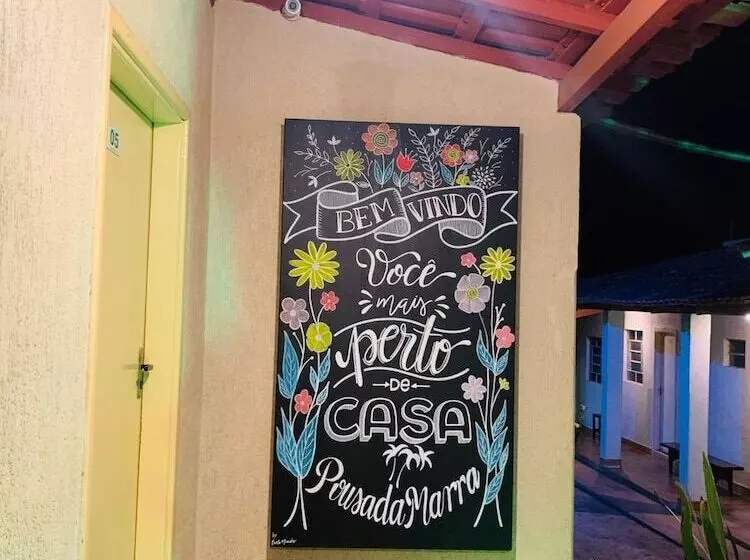 05
BEM VINDO
Você
mais
perto
DE
CASA
Pousada Marra
by